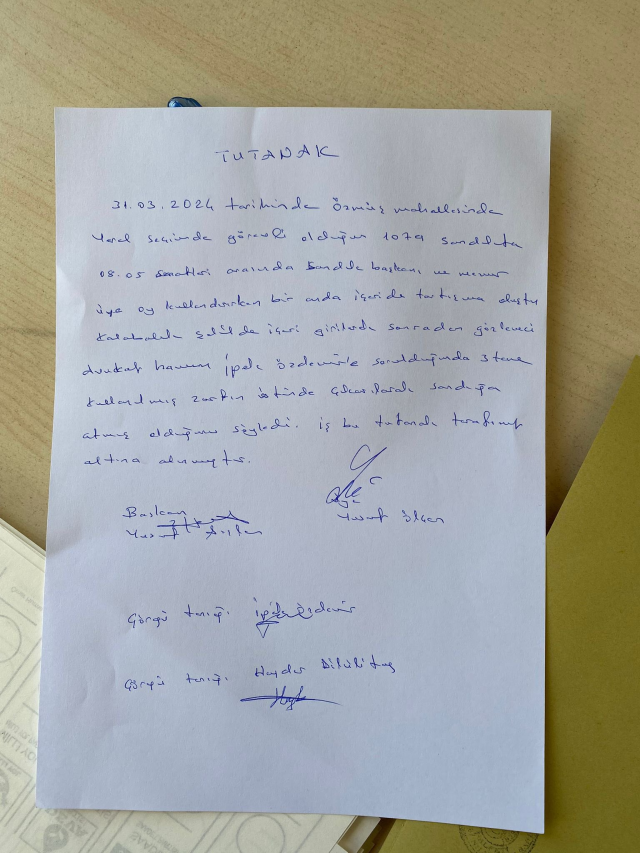 TUTANAK
31.03.2024 tarihinde Özmüş mahallesinde
Yerel seçimde görevli olduğum 1079 sandıkta
08.05 saatleri arasında Sandık başkanı ve memur
üye oy kullandırırken bir anda içeride tartışma oluştu
Kalabalık şekilde içeri girilerek sonradan gözlemci
Avukat hanım İpek Özdemir'e sorulduğunda 3 tane
kullanılmış zarfın üstünde çıkarılarak sandığa
atmış olduğunu söyledi. iş bu tutanak tarafımızca
altına alınmıştır.
Başkan
Yusuf Arslan
Üye
Yusuf
Görgü tanığı: İpek Özdemir
Görgü tanığı: Haydar